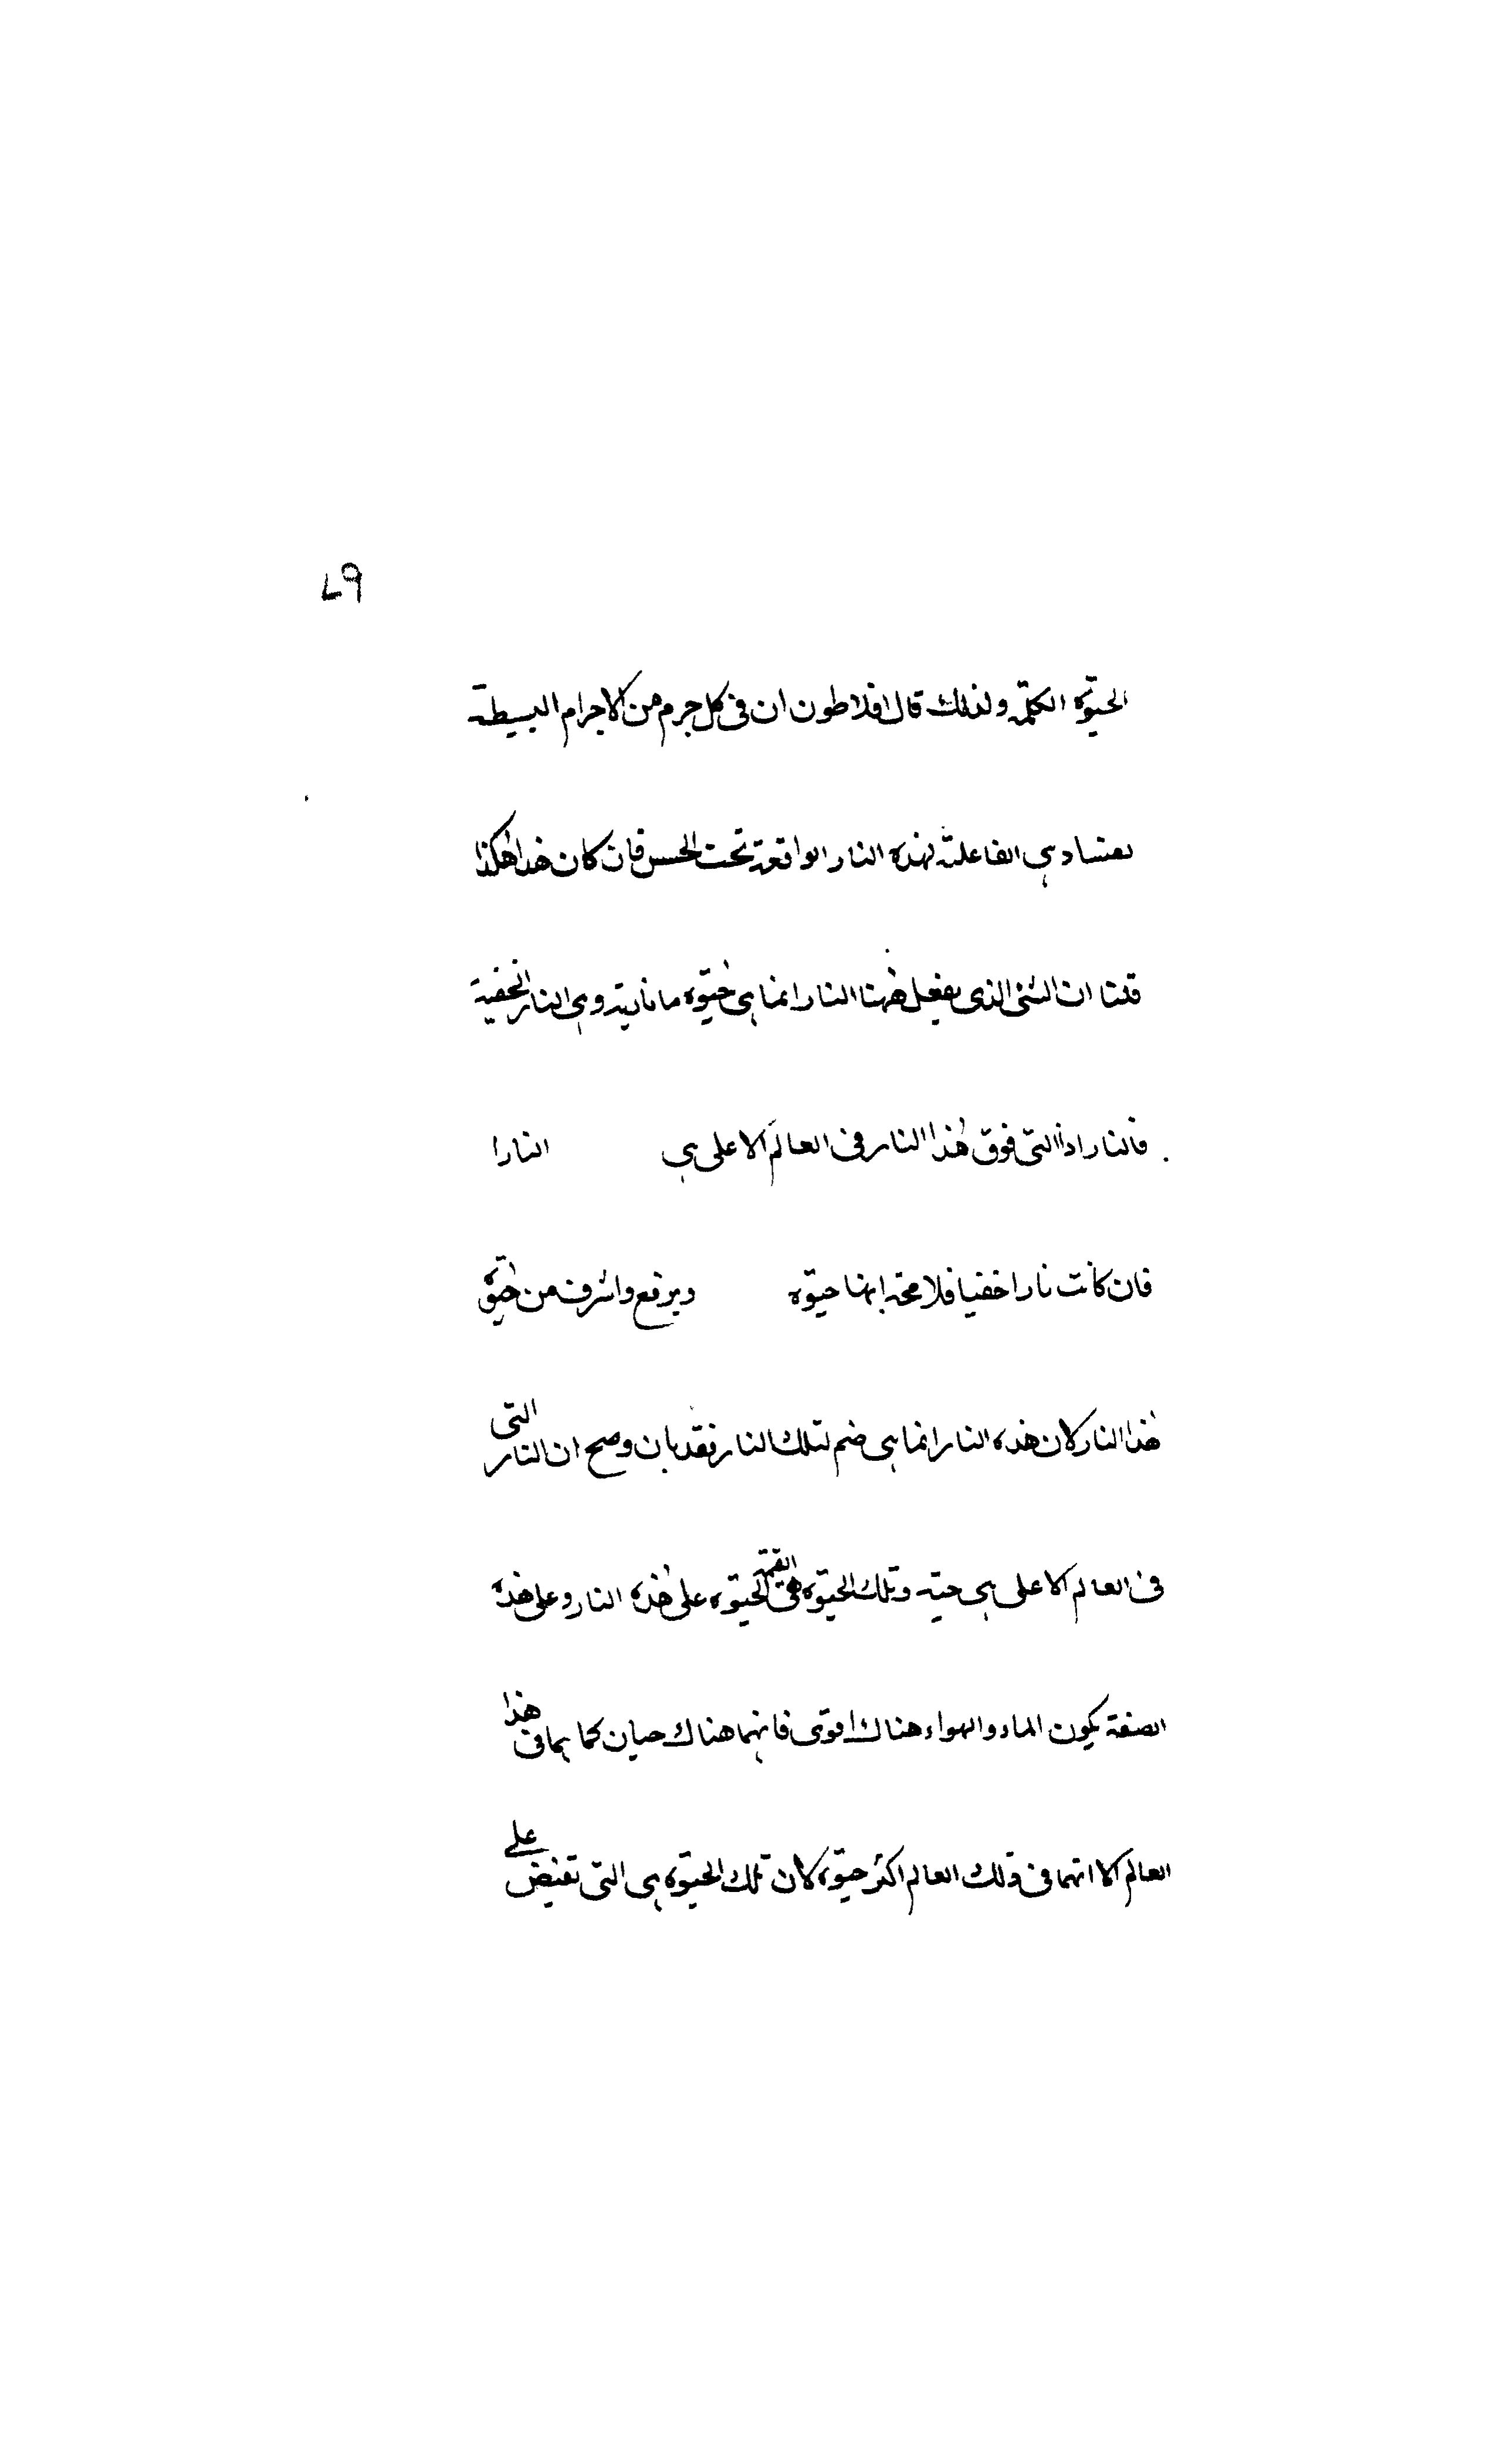 ٩٧
الحيوة الكلمة ولذلك قال افلاطون ان فى كل جرم من الاجرام البسيطة
نفسا وهى الفاعلة لهذه النار الواقعة تحت الحس فان كان هذا هكذا
قلنا ان الشئ الذى يفعل ههنا النار انما هى حيوة ما نارية وهى النار الخفية
فالنار اذا التى فوق هذا النار فى العالم الاعلى هى النارا
فان كانت نارا خفيا فلا محة انها حيوة وير فع واشرف من حيوة
هذا النار لان هذه النار انما هى ضم لتلك النار فقد بان وصح ان النار التى
فى العالم الاعلى هى حية وتلك الحيوة هى القيمة الحيوة على هذه النار وعلى هذه
الصفة يكون الماء والهواء هناك اقوى فانهما هناك حيان كما هما فى هذا
العالم الا انهما فى ذلك العالم اكثر حيوة لان تلك الحيوة هى التى تفيض على